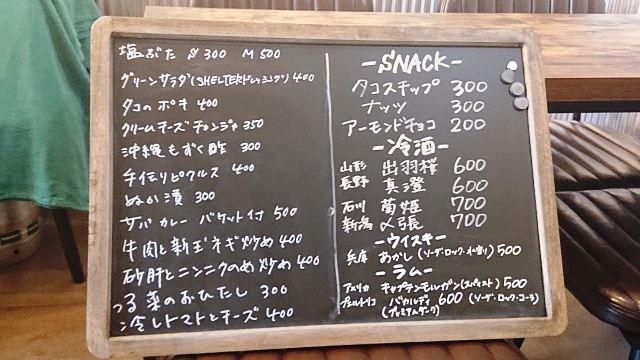 塩ぶた S 300 M 500
グリーンサラダ(SHELTERドレッシング) 400
タコのポキ 400
クリームチーズチャンジャ 350
沖縄もずく酢 300
手作りピクルス 400
ぬか漬 300
サバカレー バケット付 500
牛肉と新玉ネギ炒め 400
砂肝とニンニクのめ炒め 400
つる菜のおひたし 300
冷しトマトとチーズ 400
-SNACK-
タコスチップ 300
ナッツ 300
アーモンドチョコ 200
-冷酒-
山形 出羽桜 600
長野 真澄 600
石川 菊姫 700
新潟 〆張 700
-ウイスキー-
兵庫 あかし (ソーダ・ロック・水割り) 500
-ラム-
アメリカ キャプテンモルガン(スパイスト) 500
プエルトリコ バカルディ 600 (ソーダ・ロック・コーラ)
(プレミアムダーク)